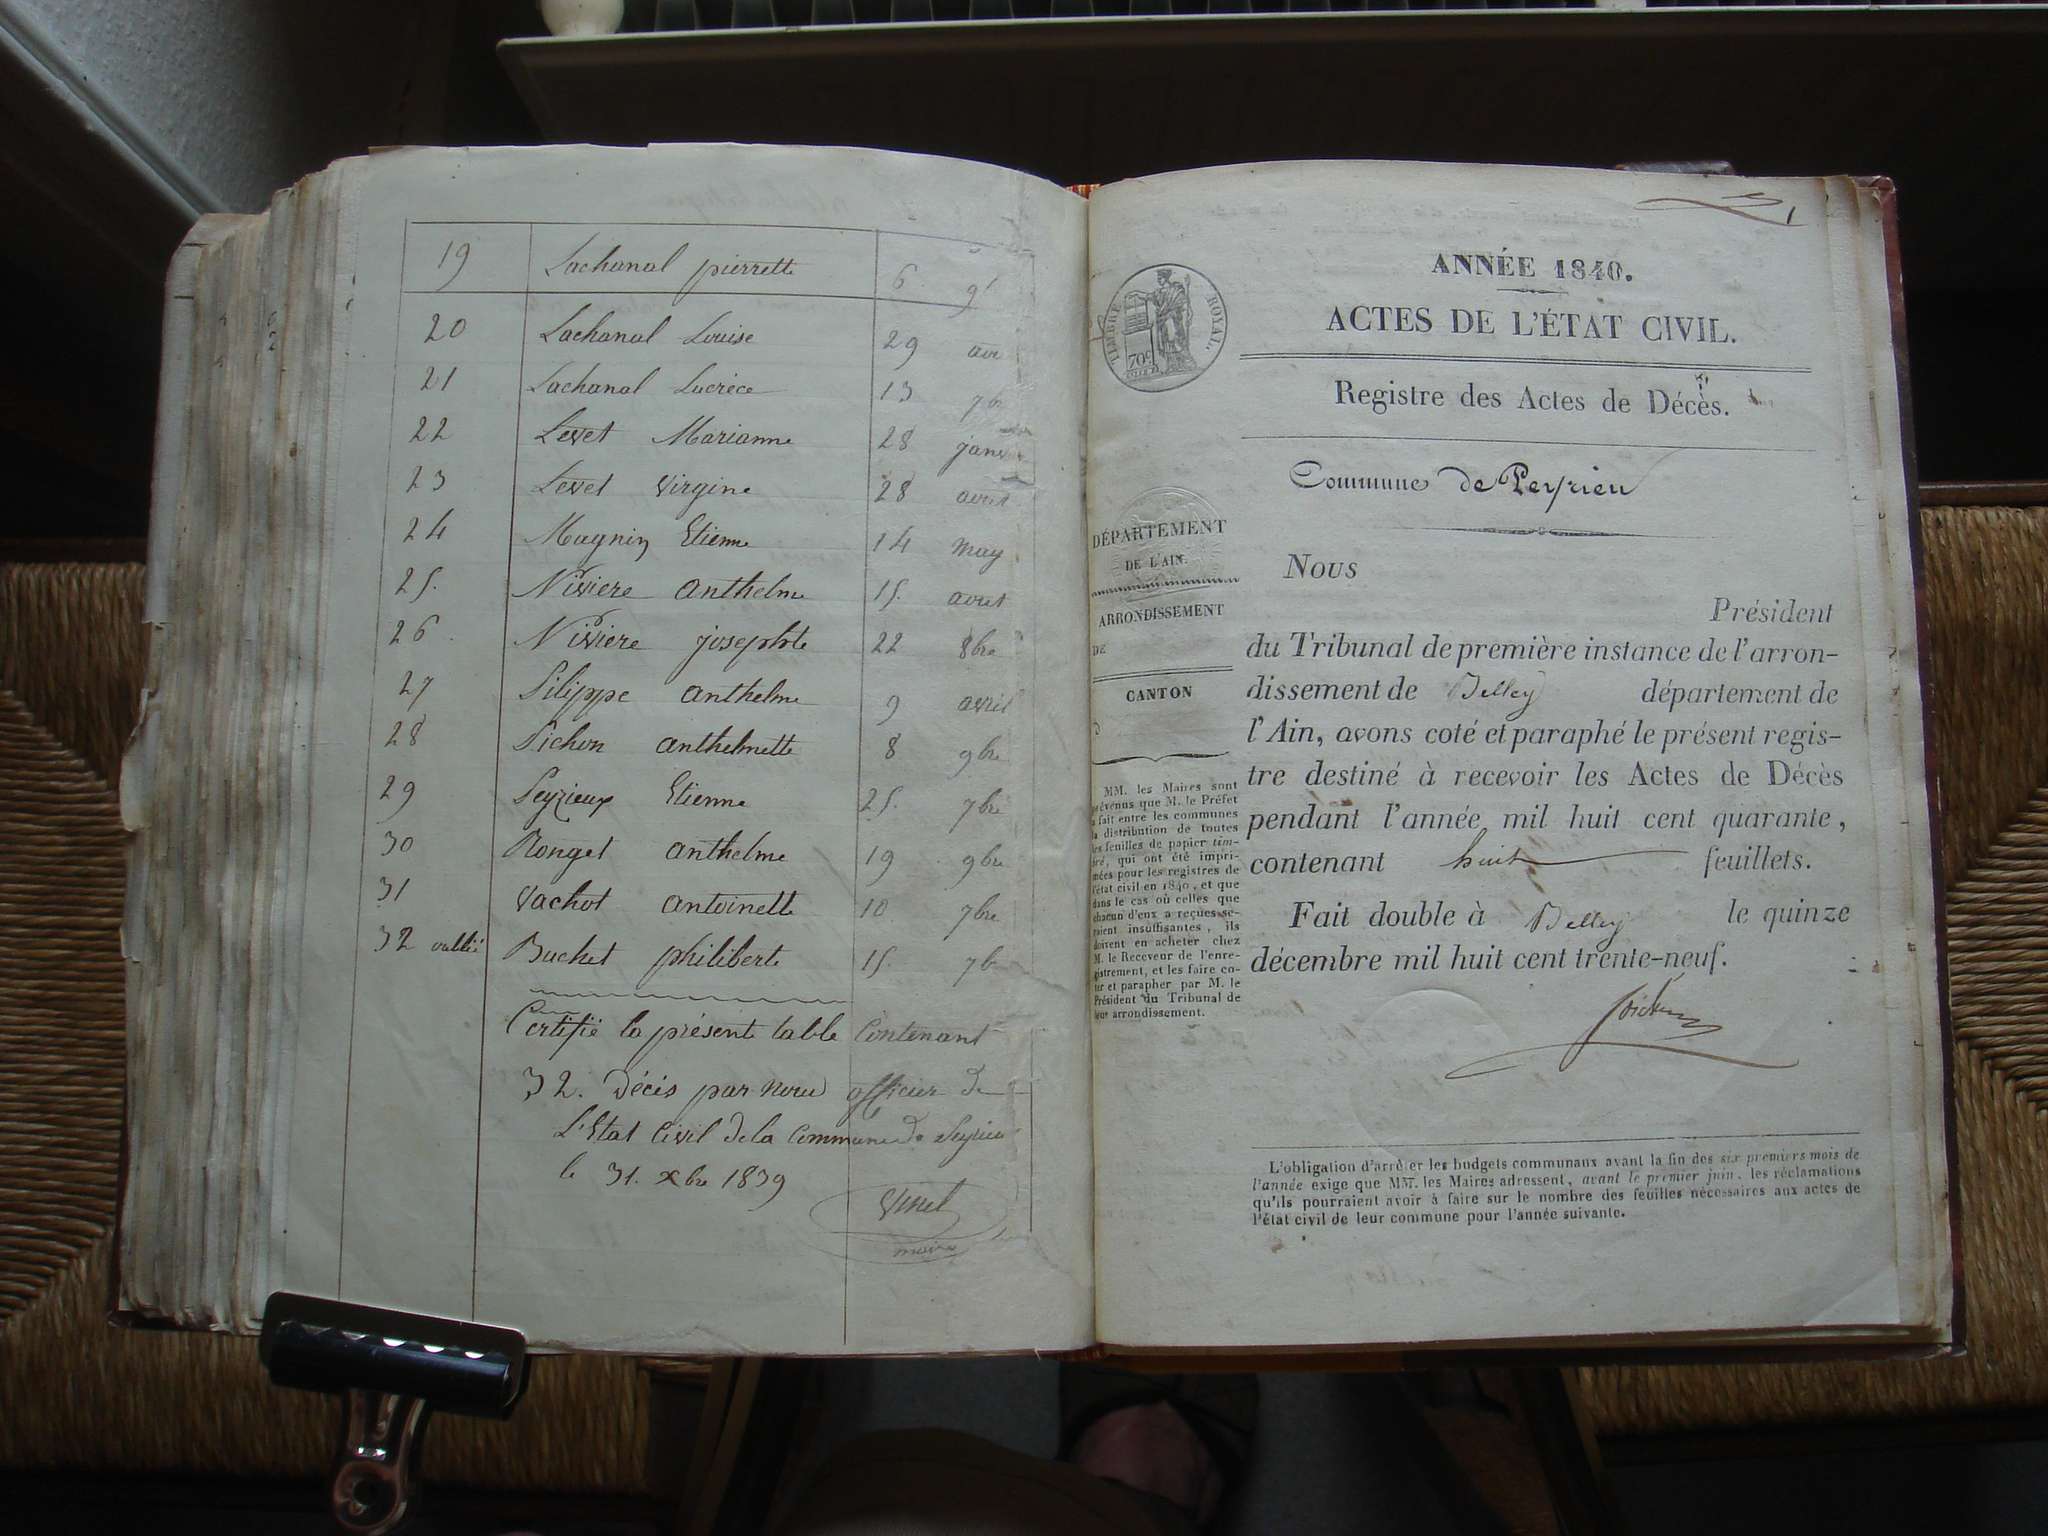 19 Lachanal pierrette 6 9
20 Lachanal Louise 29 avr
21 Lachanal Lucrèce 13 7b
22 Levet Marianne 28 janv
23 Levet Virgine 28 avril
24 Magnin Etienne 14 may
25. Niviere anthelme 15. avril
26. Niviere josephte 22 8bre
27 Pilippe anthelme 9 avril
28 Pichon anthelmette 8 9bre
29 Peyrieux Etienne 25. 7bre
30 Ronget anthelme 19 9bre
31 Vachot antoinette 10 7bre
32 oublié Buchet philiberte 15. 7b
Certifié la présente table Contenant
32. Décès par nous officier de
L'Etat Civil de la Commune de Peyrieu
le 31. xbre 1839
Vinet
maire
1
ANNÉE 1840.
ACTES DE L'ÉTAT CIVIL.
TIMBRE ROYAL.
70c
Registre des Actes de Décès.
Commune de Peyrieu
DÉPARTEMENT
DE L'AIN.
ARRONDISSEMENT
DE
CANTON
d
MM. les Maires sont
prévenus que M. le Préfet
a fait entre les communes
la distribution de toutes
les feuilles de papier tim-
bré, qui ont été impri-
mées pour les registres de
l'état civil en 1840, et que
dans le cas où celles que
chacun d'eux a reçues se-
raient insuffisantes, ils
doivent en acheter chez
M. le Receveur de l'enre-
gistrement, et les faire co-
ter et parapher par M. le
Président du Tribunal de
leur arrondissement.
Nous
Président
du Tribunal de première instance de l'arron-
dissement de Belley département de
l'Ain, avons coté et paraphé le présent regis-
tre destiné à recevoir les Actes de Décès
pendant l'année mil huit cent quarante,
contenant huit feuillets.
Fait double à Belley le quinze
décembre mil huit cent trente-neuf.
L'obligation d'arrêter les budgets communaux avant la fin des six premiers mois de
l'année exige que MM. les Maires adressent, avant le premier juin, les réclamations
qu'ils pourraient avoir à faire sur le nombre des feuilles nécessaires aux actes de
l'état civil de leur commune pour l'année suivante.